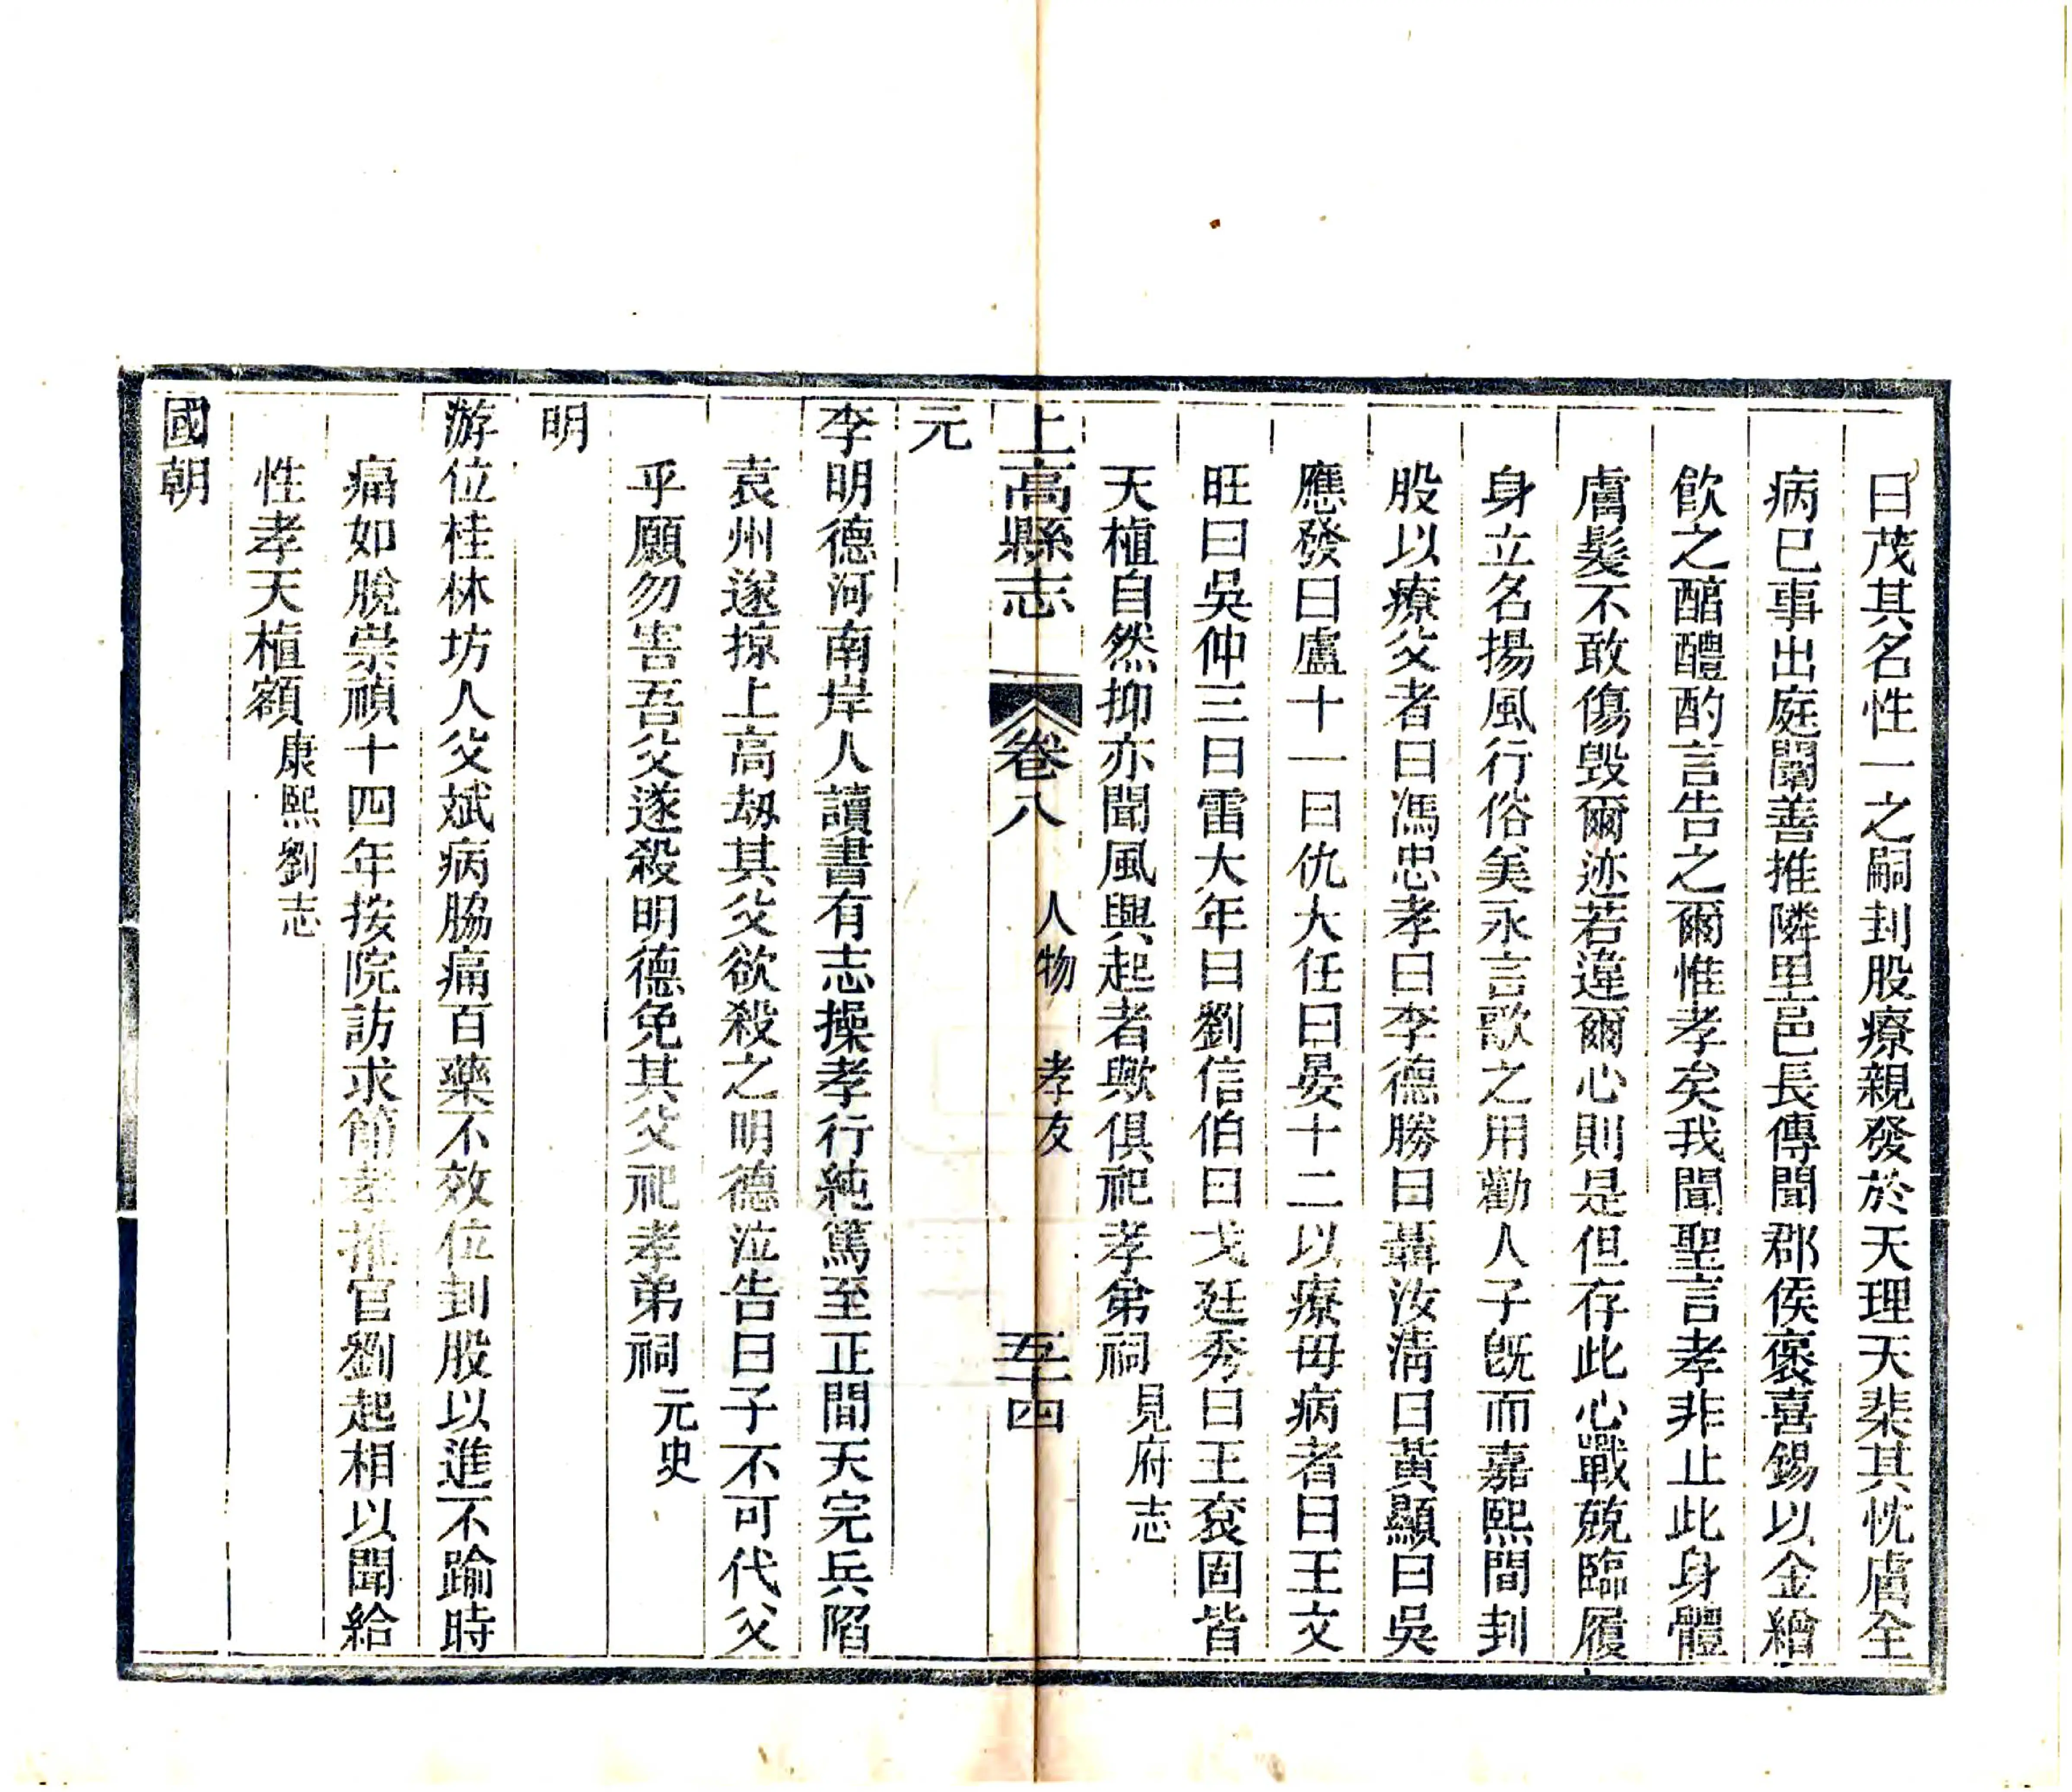 曰茂其名性一之嗣刲股療親發於天理天棐其忱膚全
病已事出庭闈善推隣里邑長傳聞郡侯褒喜錫以金繒
飲之醑醴酌言告之爾惟孝矣我聞聖言孝非止此身體
膚髮不敢傷毀爾迹若違爾心則是但存此心戰兢臨履
身立名揚風行俗美永言歌之用勸人子旣而嘉熙間刲
股以療父者曰馮忠孝曰李德勝曰聶汝淸曰黃顯曰吳
應發曰盧十一曰仇大任曰晏十二以療毋病者曰王文
旺曰吳仲三曰雷大年曰劉信伯曰戈廷秀曰王袞固皆
天植自然抑亦聞風興起者歟俱祀孝弟祠見府志
上高縣志 卷八 人物 孝友 五十四
元
李明德河南岸人讀書有志操孝行純篤至正間天完兵陷
袁州遂掠上高刼其父欲殺之明德泣告曰子不可代父
乎願勿害吾父遂殺明德免其父祀孝弟祠元史
明
游位桂林坊人父斌病脇痛百藥不效位刲股以進不踰時
痛如脫崇禎十四年按院訪求節孝推官劉起相以聞給
性孝天植額康熙劉志
國朝